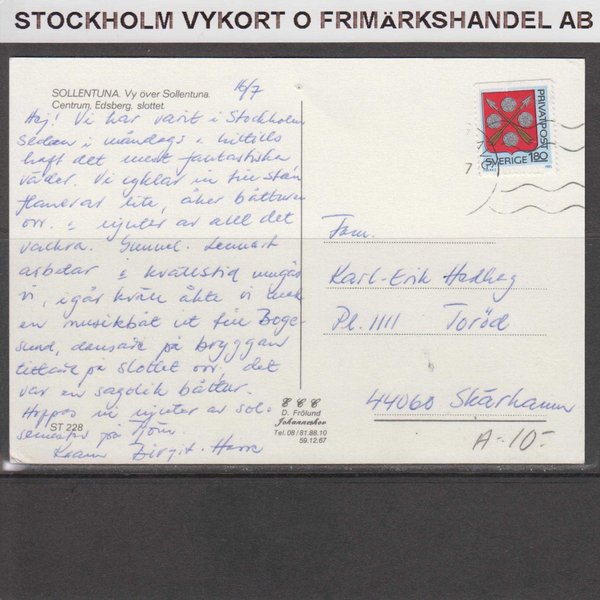 STOCKHOLM VYKORT O FRIMÄRKSHANDEL AB
SOLLENTUNA. Vy över Sollentuna
Centrum, Edsberg, slottet.
16/7
Hej! Vi har varit i Stockholm
sedan i måndags o hittills
haft det mest fantastiska
väder. Vi cyklar in till stan
flanerar lite, åker båtturer
osv. o njuter av allt det
vackra. Gunnel. Lennart
arbetar o kvällstid umgås
vi, igår kväll åkte vi med
en musikbåt ut till Boge-
sund, dansade på bryggan
tittade på slottet osv. det
var en sagolik båttur.
Hoppas ni njuter av sol-
semester på Tjörn.
Kram Birgit. Hasse
ST 228
E C C
D. Frölund
Johanneshov
Tel. 08/81.88.10
59.12.67
PRIVATPOST
SVERIGE 180
Fam.
Karl-Erik Hedberg
Pl. 1111 Toröd
44060 Skärhamn
A-10:-